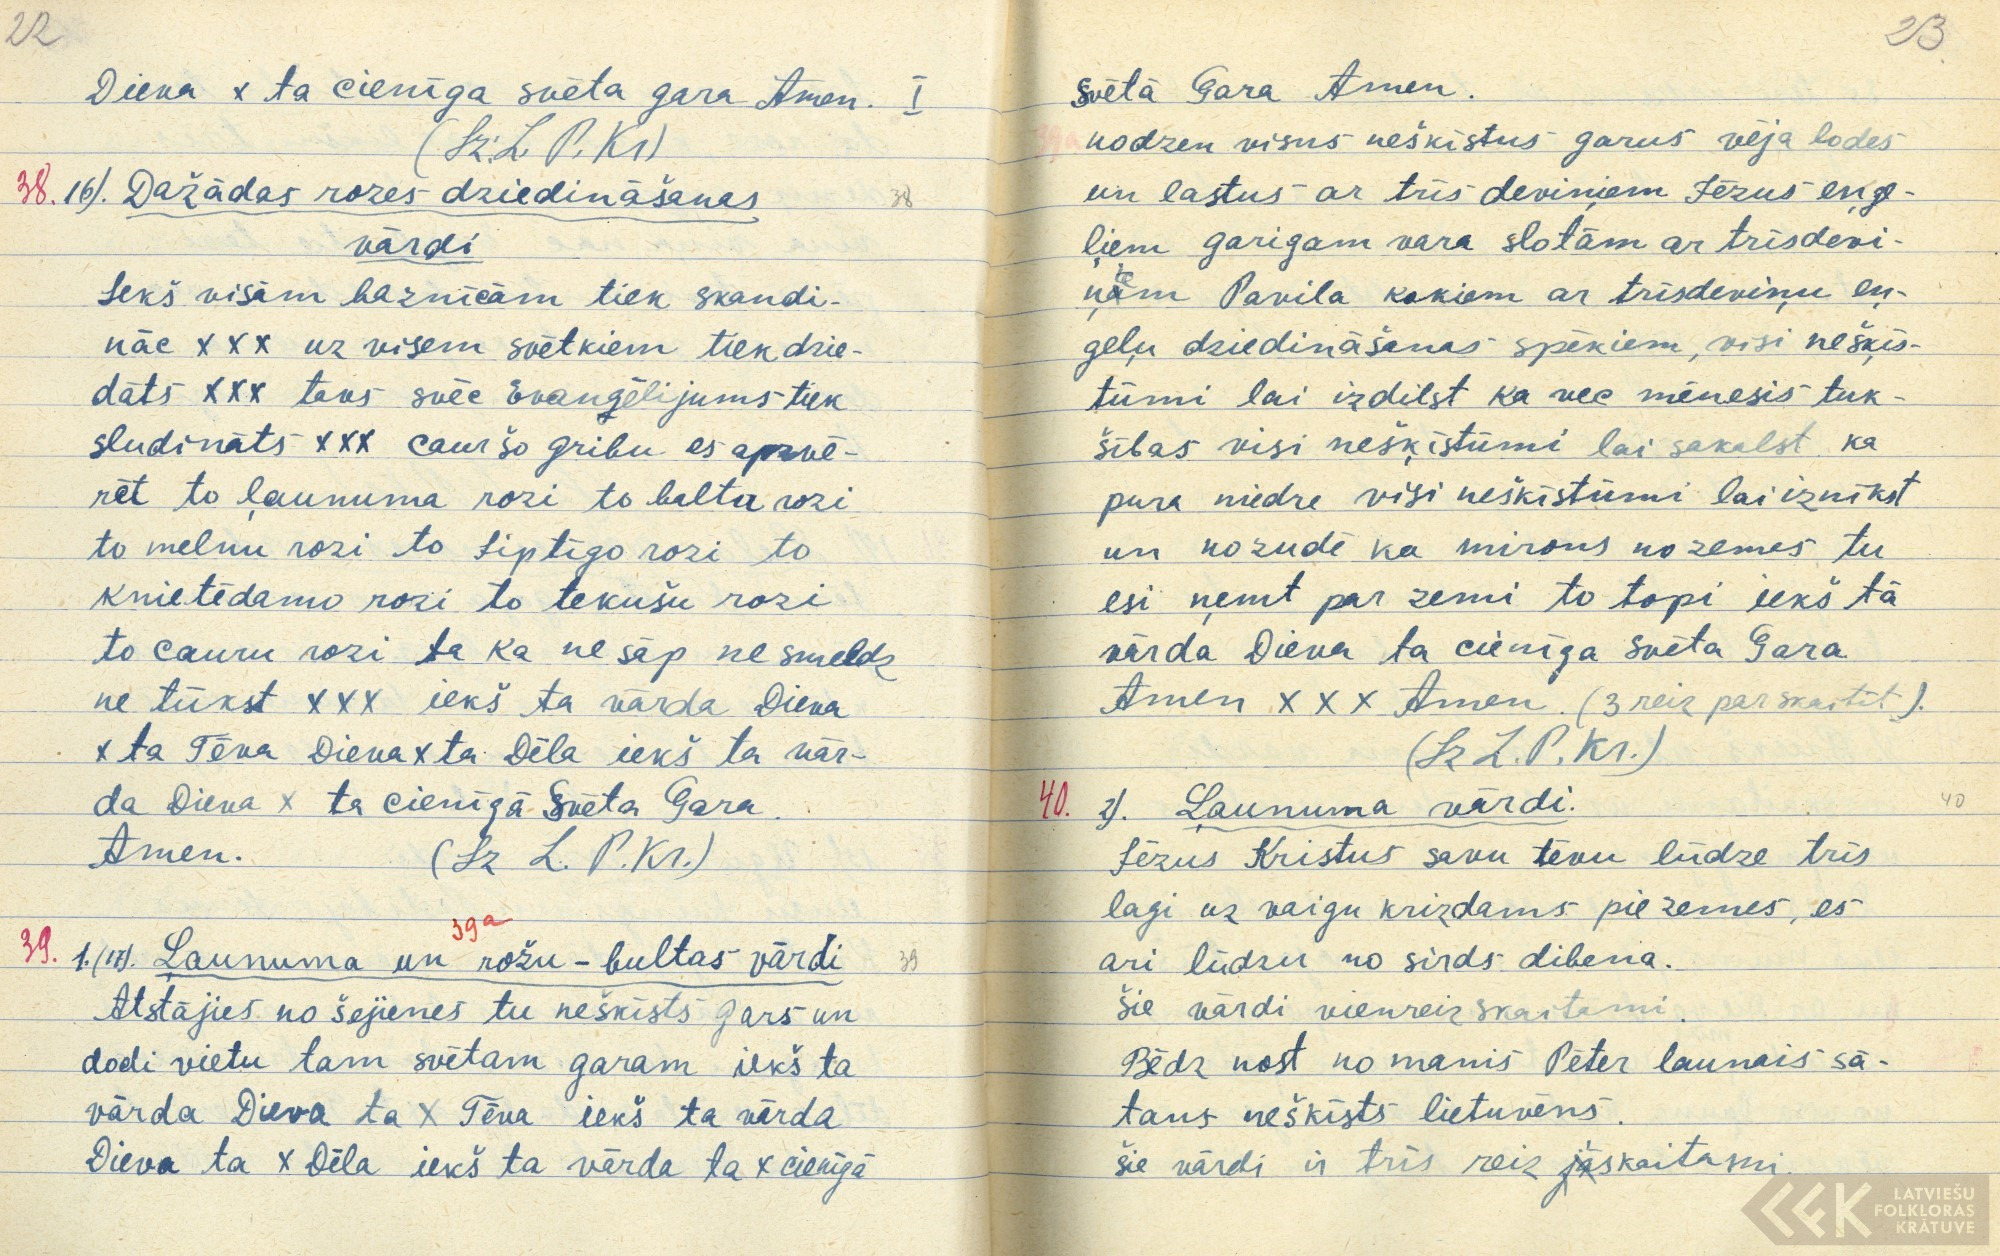 22
Dieva x ta cienīga svēta gara Amen. I
(Sz. L. P. Kr)
38. 16). Dažādas rozes dziedināšanas 38
vārdi
Iekš visām baznīcām tiek skandi-
nāc xxx uz visem svētkiem tiek dzie-
dāts xxx tavs svēc Evanģēlijums tiek
sludināts xxx caur šo gribu es apzvē-
rēt to ļaunuma rozi to baltu rozi
to melnu rozi to siptīgo rozi to
knietēdamo rozi to tekušu rozi
to cauru rozi ta ka ne sāp ne smeldz
ne tūkst xxx iekš ta vārda Dieva
x ta Tēva Dieva x ta Dēla iekš ta vār-
da Dieva x ta cienīgā Svēta Gara.
Amen. (Sz L. P. Kr.)
39a
39. 1.(17). Ļaunuma un rožu - bultas vārdi 39
Atstājies no šejienes tu neškīsts gars un
dodi vietu tam svētam garam iekš ta
vārda Dieva ta x Tēva iekš ta vārda
Dieva ta x Dēla iekš ta vārda ta x cienīgā
23
svētā Gara Amen.
39a nodzen visus neškīstus garus vēja lodes
un lastus ar trīs deviņiem Jēzus eņģe-
ļiem garigam vara slotām ar trīsdevi-
ņiem Pavila kokiem ar trīsdeviņu eņ-
geļu dziedināšanas spēkiem, visi nešķīs-
tūmi lai izdilst ka vec mēnesis tuk-
šības visi nešķīstūmi lai sakalst ka
pura niedre visi neškīstūmi lai iznīkst
un nozudē ka mirons no zemes tu
esi ņemt par zemi to topi iekš tā
vārda Dieva ta cienīga svēta Gara
Amen x x x Amen. (3 reiz parskaitīt).
(Sz L. P. Kr.)
40. 2). Ļaunuma vārdi. 40
Jēzus Kristus savu tēvu lūdze trīs
lagi uz vaigu krizdams pie zemes, es
ari lūdzu no sirds dibena.
šie vārdi vienreiz skaitami.
Bēdz nost no manis Pēter launais sā-
tans neškīsts lietuvēns.
šie vārdi ir trīs reiz jāskaitami.
LATVIEŠU
FOLKLORAS
KRĀTUVE